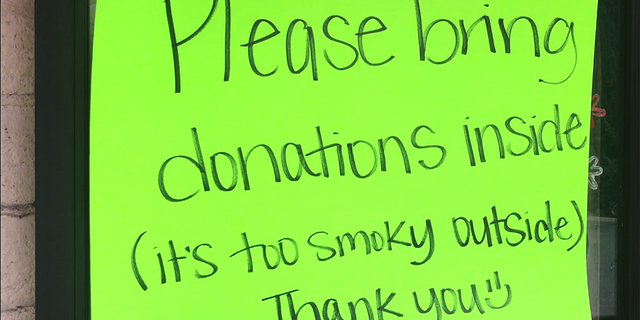 Please bring
donations inside
(it's too smoky outside)
Thank you